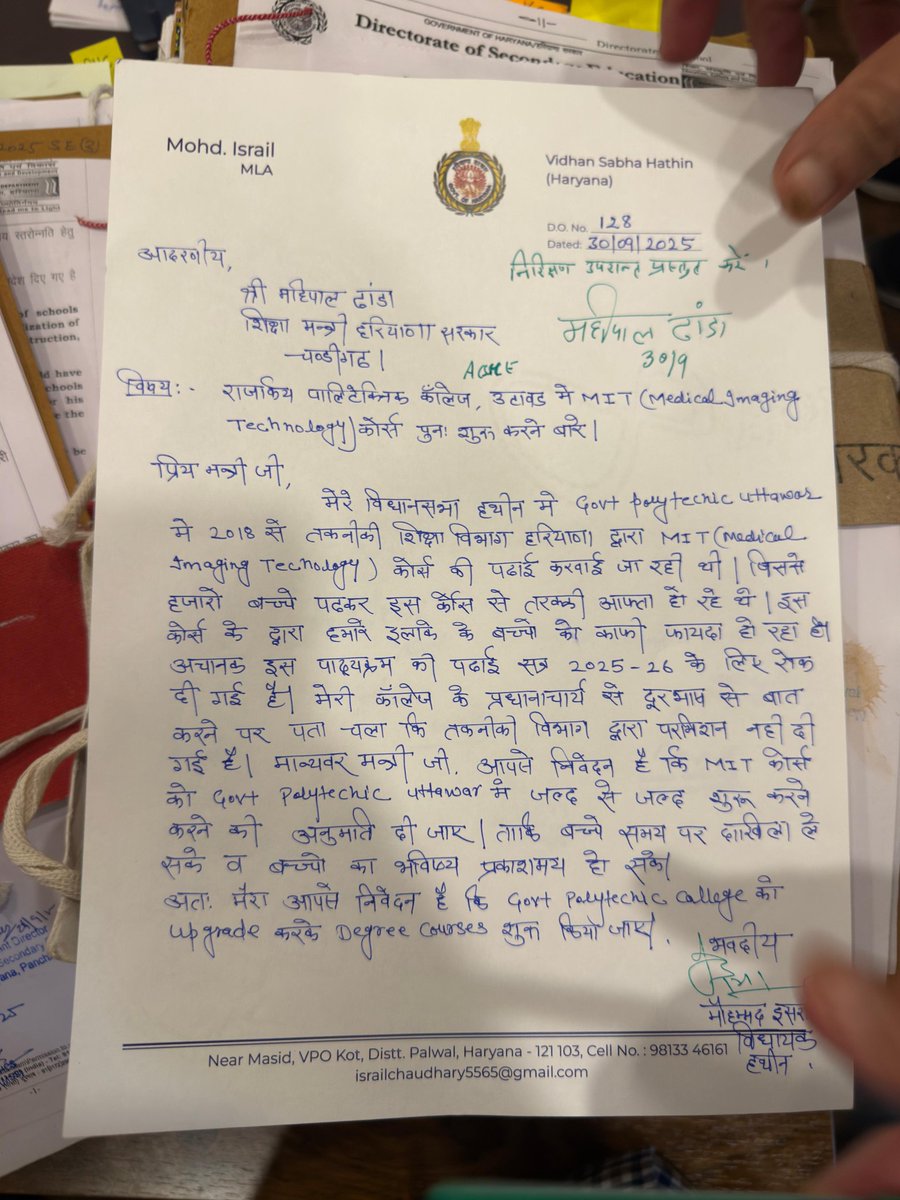 GOVERNMENT OF HARYANA/हरियाणा सरकार
Directorate of Secondary Education
2025 SE(3)
Mohd. Israil
MLA
Vidhan Sabha Hathin
(Haryana)
D.O. No. 128
Dated: 30/09/2025
निरिक्षण उपरान्त प्रस्तुत करें ।
महीपाल ढांडा
30/9
आदरणीय,
श्री महिपाल ढांडा
शिक्षा मन्त्री हरियाणा सरकार
चण्डीगढ ।
विषय:- राजकिय पालिटेक्निक कॉलेज, उटावड मे MIT (Medical Imaging
Technology) कोर्स पुनः शुरू करने बारे ।
प्रिय मन्त्री जी,
मेरे विधानसभा हथीन मे Govt Polytecnic uttawar
मे 2018 से तकनीकी शिक्षा विभाग हरियाणा द्वारा MIT (Medical
Imaging Technology) कोर्स की पढाई करवाई जा रही थी | जिससे
हजारो बच्चे पढकर इस कोर्स से तरक्की आफ्ता हो रहे थे | इस
कोर्स के द्वारा हमारे इलाके के बच्चो को काफी फायदा हो रहा है।
अचानक इस पाठ्यक्रम की पढाई सत्र 2025-26 के लिए रोक
दी गई है। मेरी कॉलेज के प्रधानाचार्य से दूरभाष से बात
करने पर पता चला कि तकनीकी विभाग द्वारा परमिशन नही दी
गई है। मान्यवर मन्त्री जी, आपसे निवेदन है कि MIT कोर्स
को Govt Polytechic uttawar में जल्द से जल्द शुरू करने
करने की अनुमति दी जाए | ताकि बच्चे समय पर दाखिला ले
सके व बच्चो का भविष्य प्रकाशमय हो सके।
अतः मेरा आपसे निवेदन है कि Govt Polytechic College को
upgrade करके Degree Courses शुरू किये जाए।
भवदीय
मौहम्मद इसरा
विधायक
हथीन .
Near Masid, VPO Kot, Distt. Palwal, Haryana - 121 103, Cell No. : 98133 46161
israilchaudhary5565@gmail.com